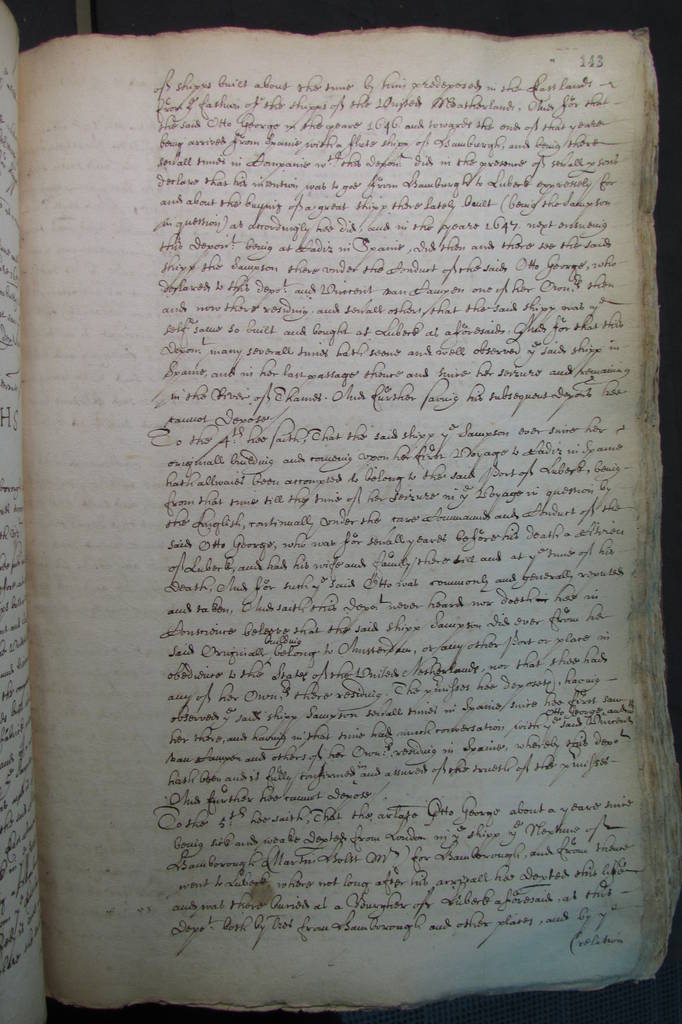 143
of shipps built about the time by him predeposed in the Eastlands
for ye fashion of the shipps of the United Neatherlands. And for that
the said Otto George in the yeare 1646 and towards the end of that yeare
being arrived from Spaine with a flute shipp of Hamburgh, and being there
severall times in Companie wth this deponent did in the presence of severall persons
declare that his intention was to goe from Hamburgh to Lubeck expressely for
and about the buying of a great shipp there lately built (being the Sampson
in question) as accordingly hee did, and in the yeare 1647. next ensueing
this depont being at Cadiz in Spaine, did then and there see the said
shipp the Sampson there under the Conduct of the said Otto George, who
declared to this depot and Vincent van Campen one of her Owners then
and now there residing, and severall others, that the said shipp was ye
selfe same so built and bought at Lubeck as aforesaid. And for that this
Deponent many severall times hath seene and well observed ye said shipp in
Spaine, and in her last passage thence and since her seizure and remaining
in the River of Thames. And further saving his subsequent deposition hee
cannot depose
To the 4th hee saith, That the said shipp ye Sampson ever since her
originall building and comeing upon her first Voyage to Cadiz in Spaine
hath allwaies been accompted to belong to the said Port of Lubeck, being
from that time till the time of her seizure in ye Voyage in question by
the English, continually under the care Command and Conduct of the
said Otto George, who was for severall yeares before his death a Citizen
of Lubeck, and had his wife and family there till and at ye time of his
death, And for such ye said Otto was commonly and generally reputed
and taken. And saith this depot never heard nor doeth hee in
Conscience beleeve that the said shipp Sampson did ever from her
building
said Originall belong to Amsterdam, or any other Port or place in
obedience to the States of the United Netherlands, nor that shee had
any of her Owners there residing. The premisses hee deposeth, having
observed ye said shipp Sampson severall times in Spaine, since hee first saw
Otto George, and
her there, and having in that time had much conversation with ye said Vincent
van Campen and others of her Owners, residing in Spaine, whereby this depot
hath been and is fully confirmed and assured of the trueth of the premisses
And further hee cannot depose
To the 5th hee saith, That the arlate Otto George about a yeare since
being sick and weake depted from London in ye shipp ye Neptune of
Hamborough (Martin Holst Mr) for Hamborough, and from thence
went to Lubeck, where not long after his arryvall hee depted this life
and was there buried as a Burgher of Lubeck aforesaid, as this
depot both by lres from Hamborough and other places, and by ye
(relation